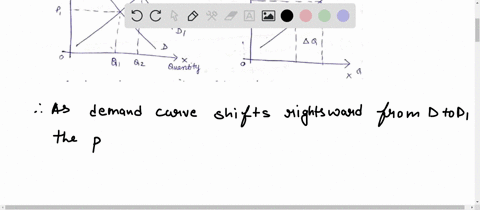 P₁
D₁
D
0
Q₁ Q₂
X
Quantity
ΔQ
0
X Q
∴ As demand curve shifts rightsward from D to D₁
the p